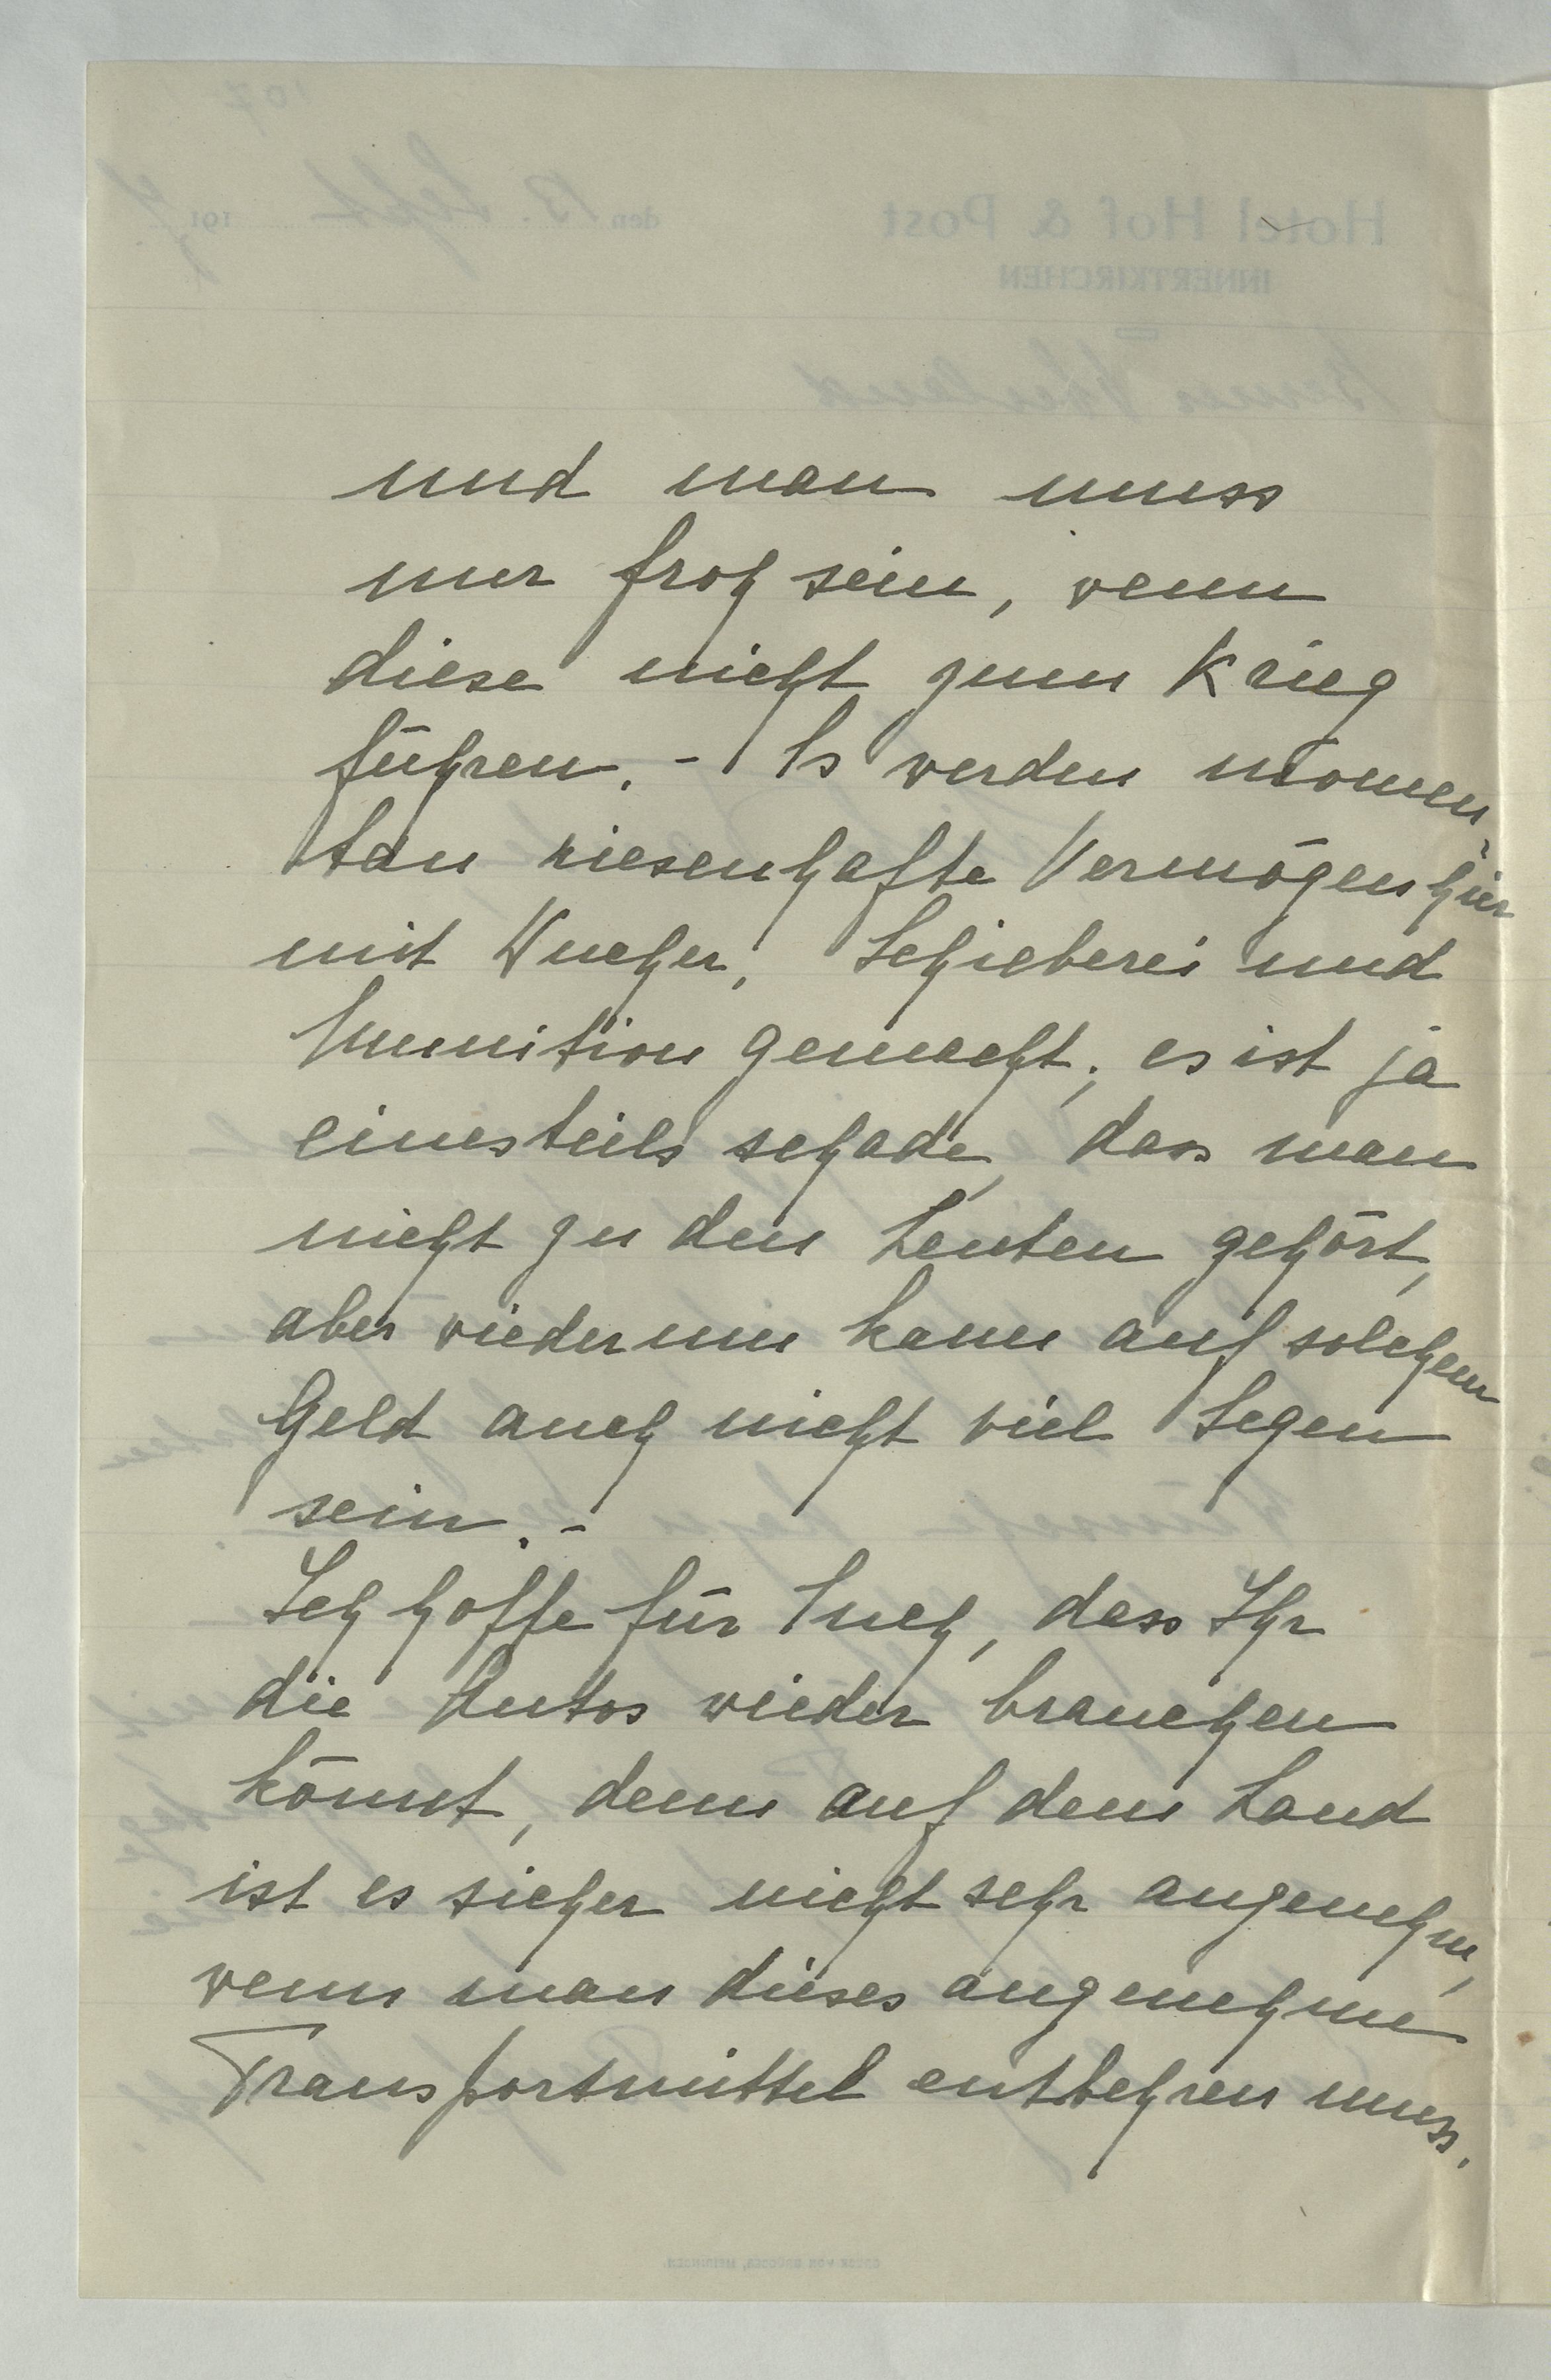 und man muss
nur froh sein, wenn
diese nicht zum Krieg
führen. - Es werden momen-
tan riesenhafte Vermögen hier
mit Wucher, Schieberei und
Munition gemacht; es ist ja
einesteils schade, dass man
nicht zu den Leuten gehört,
aber wiederum kann auf solchem
Geld auch nicht viel Segen
sein. -
Ich hoffe für Euch, dass Ihr
die Autos wieder brauchen
könnt, denn auf dem Land
ist es sicher nicht sehr angenehm,
wenn man dieses angenehme
Transportmittel entbehren muss.
Hotel Hof & Post
INNERTKIRCHEN
den 13. Sept. 1917.
Berner Oberland